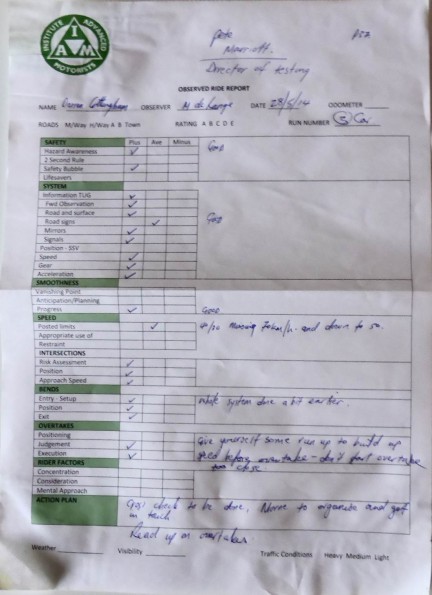 INSTITUTE ADVANCED MOTORISTS
IAM
Pete
Marriott.
Director of testing
OBSERVED RIDE REPORT
NAME OBSERVER M DATE 28/5/14 ODOMETER
ROADS M/Way H/Way A B Town RATING A B C D E RUN NUMBER 3 Car
SAFETY Plus Ave Minus
Hazard Awareness Good
2 Second Rule
Safety Bubble
Lifesavers
SYSTEM
Information TUG
Fwd Observation
Road and surface Good
Road signs
Mirrors
Signals
Position - SSV
Speed
Gear
Acceleration
SMOOTHNESS
Vanishing Point
Anticipation/Planning
Progress Good
SPEED
Posted limits and down to 50.
Appropriate use of
Restraint
INTERSECTIONS
Risk Assessment
Position
Approach Speed
BENDS
Entry - Setup whole system done a bit earlier.
Position
Exit
OVERTAKES
Positioning
Judgement Give yourself some run up to build up
Execution speed before overtake - don't start overtake
too close
RIDER FACTORS
Concentration
Consideration
Mental Approach
ACTION PLAN check to be done, to organise and get
in touch
Read up on overtakes.
Weather Visibility Traffic Conditions Heavy Medium Light